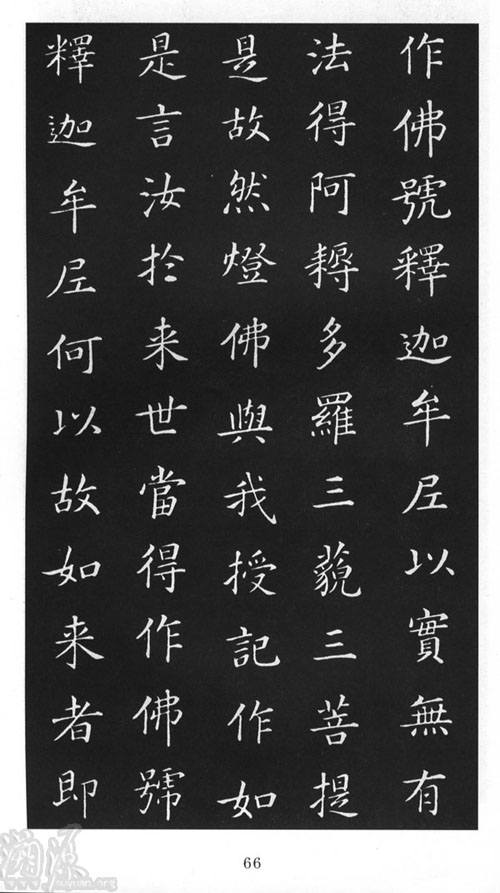 作佛號釋迦牟𡰱以實無有
法得阿耨多羅三藐三菩提
是故然燈佛與我授記作如
是言汝扵来世當得作佛號
釋迦牟𡰱何以故如来者即
66
溯源
suyuan.org